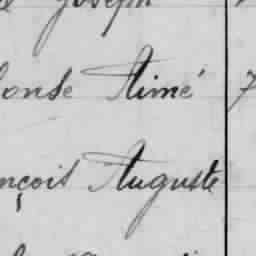 Joseph
onse Aimé 7
nçois Auguste